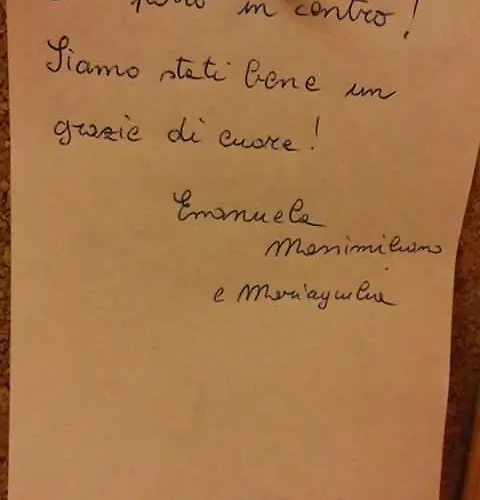 in centro!
Siamo stati bene un
grazie di cuore!
Emanuela
Massimiliano
e Mariagiulia